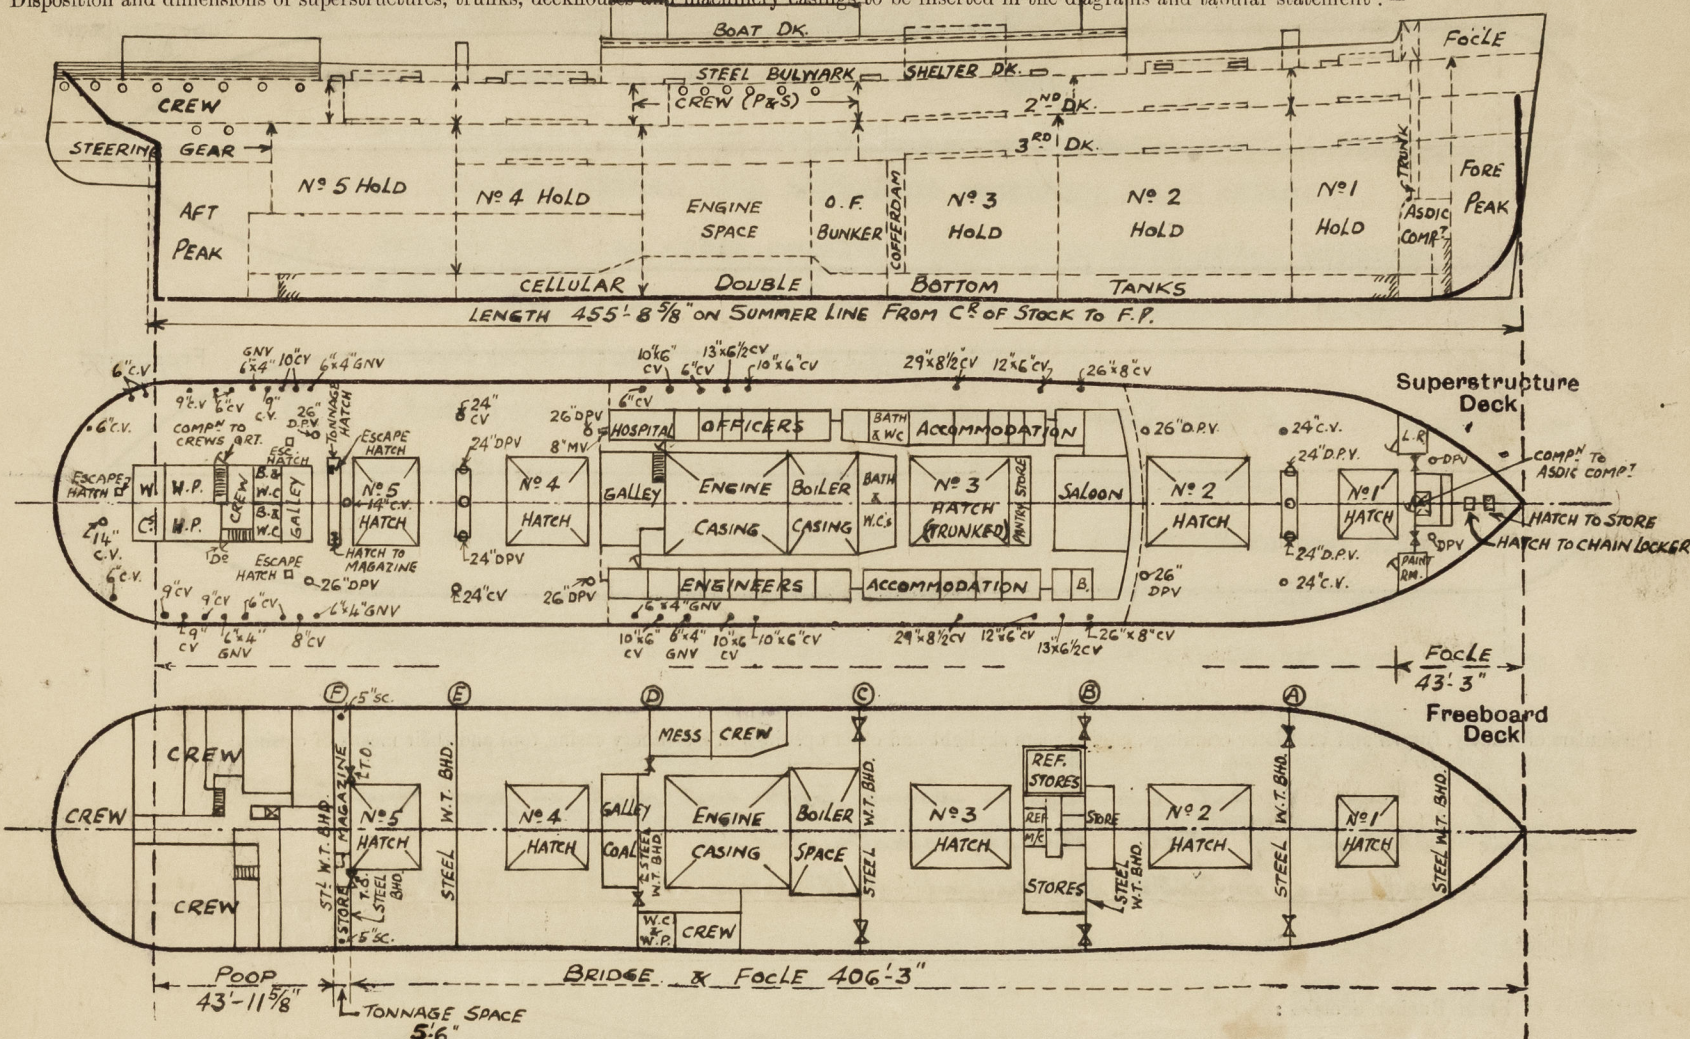 Disposition and dimensions of superstructures, trunks, deckhouses and machinery casings to be inserted in the diagrams and tabular statement :—
BOAT DK.
FOCLE
STEEL BULWARK
SHELTER DK.
CREW
CREW (P&S)
2ND DK.
STEERING GEAR
3RD DK.
Nº 5 HOLD
Nº 4 HOLD
AFT
PEAK
ENGINE
SPACE
O.F.
BUNKER
COFFERDAM
Nº 3
HOLD
Nº 2
HOLD
Nº 1
HOLD
TRUNK
ASDIC
COMPT
FORE
PEAK
CELLULAR DOUBLE BOTTOM TANKS
LENGTH 455'-8 5/8" ON SUMMER LINE FROM CR OF STOCK TO F.P.
6"C.V.
GNV
6"x4"
10"CV
6"x4"GNV
10"x6"
CV
13"x6½"CV
6"CV
10"x6"CV
29"x8½"CV
12"x6"CV
26"x8"CV
Superstructure
Deck
9"C.V
6"CV
9"
C.V.
26"
D.P.V.
TONNAGE
HATCH
6"C.V.
COMPN TO
CREWS QRT.
ESC.
HATCH
ESCAPE
HATCH
24"
CV
24"DPV
26"DPV
8"MV
6"CV
HOSPITAL
OFFICERS
BATH
& WC
ACCOMMODATION
26"D.P.V.
24"C.V.
24"D.P.V.
L.R
DPV
COMPN TO
ASDIC COMPT
ESCAPE
HATCH
W.
Cs
W.P.
W.P.
CREW
B.&
W.C
B.&
W.C
GALLEY
Nº 5
14"C.V.
HATCH
Nº 4
HATCH
GALLEY
ENGINE
CASING
BOILER
CASING
BATH
&
W.C's
Nº 3
HATCH
(TRUNKED)
PANTRY STORE
SALOON
Nº 2
HATCH
Nº 1
HATCH
HATCH TO STORE
HATCH TO CHAIN LOCKER
14"
C.V.
Do
ESCAPE
HATCH
HATCH TO
MAGAZINE
24"DPV
24"D.P.V.
DPV
PAINT
RM.
6"C.V.
26"DPV
24"CV
26"DPV
ENGINEERS
ACCOMMODATION
B.
26"
DPV
24"C.V.
9"CV
9"CV
6"CV
6"x4"GNV
6"x4"GNV
9"
CV
6"x4"
GNV
8"CV
10"x6"
CV
6"x4"
GNV
10"x6
CV
10"x6"CV
29"x8½"CV
12"x6"CV
13"x6½"CV
26"x8"CV
FOCLE
43'-3"
F
5"SC.
E
D
C
B
A
Freeboard
Deck
CREW
CREW
CREW
STL W.T. BHD.
MAGAZINE
STORE
T.O.
T.B.
STEEL
BHD.
5"SC.
Nº 5
HATCH
STEEL W.T. BHD.
Nº 4
HATCH
MESS
CREW
GALLEY
COAL
STEEL
W.T. BHD
ENGINE
CASING
BOILER
SPACE
W.C
&
W.P.
CREW
STEEL W.T. BHD.
Nº 3
HATCH
REF.
STORES
REF
M/C
STORE
STORES
STEEL
W.T. BHD.
Nº 2
HATCH
STEEL W.T. BHD.
Nº 1
HATCH
STEEL W.T. BHD.
POOP
43'-11 5/8"
BRIDGE & FOCLE 406'-3"
TONNAGE SPACE
5'6"